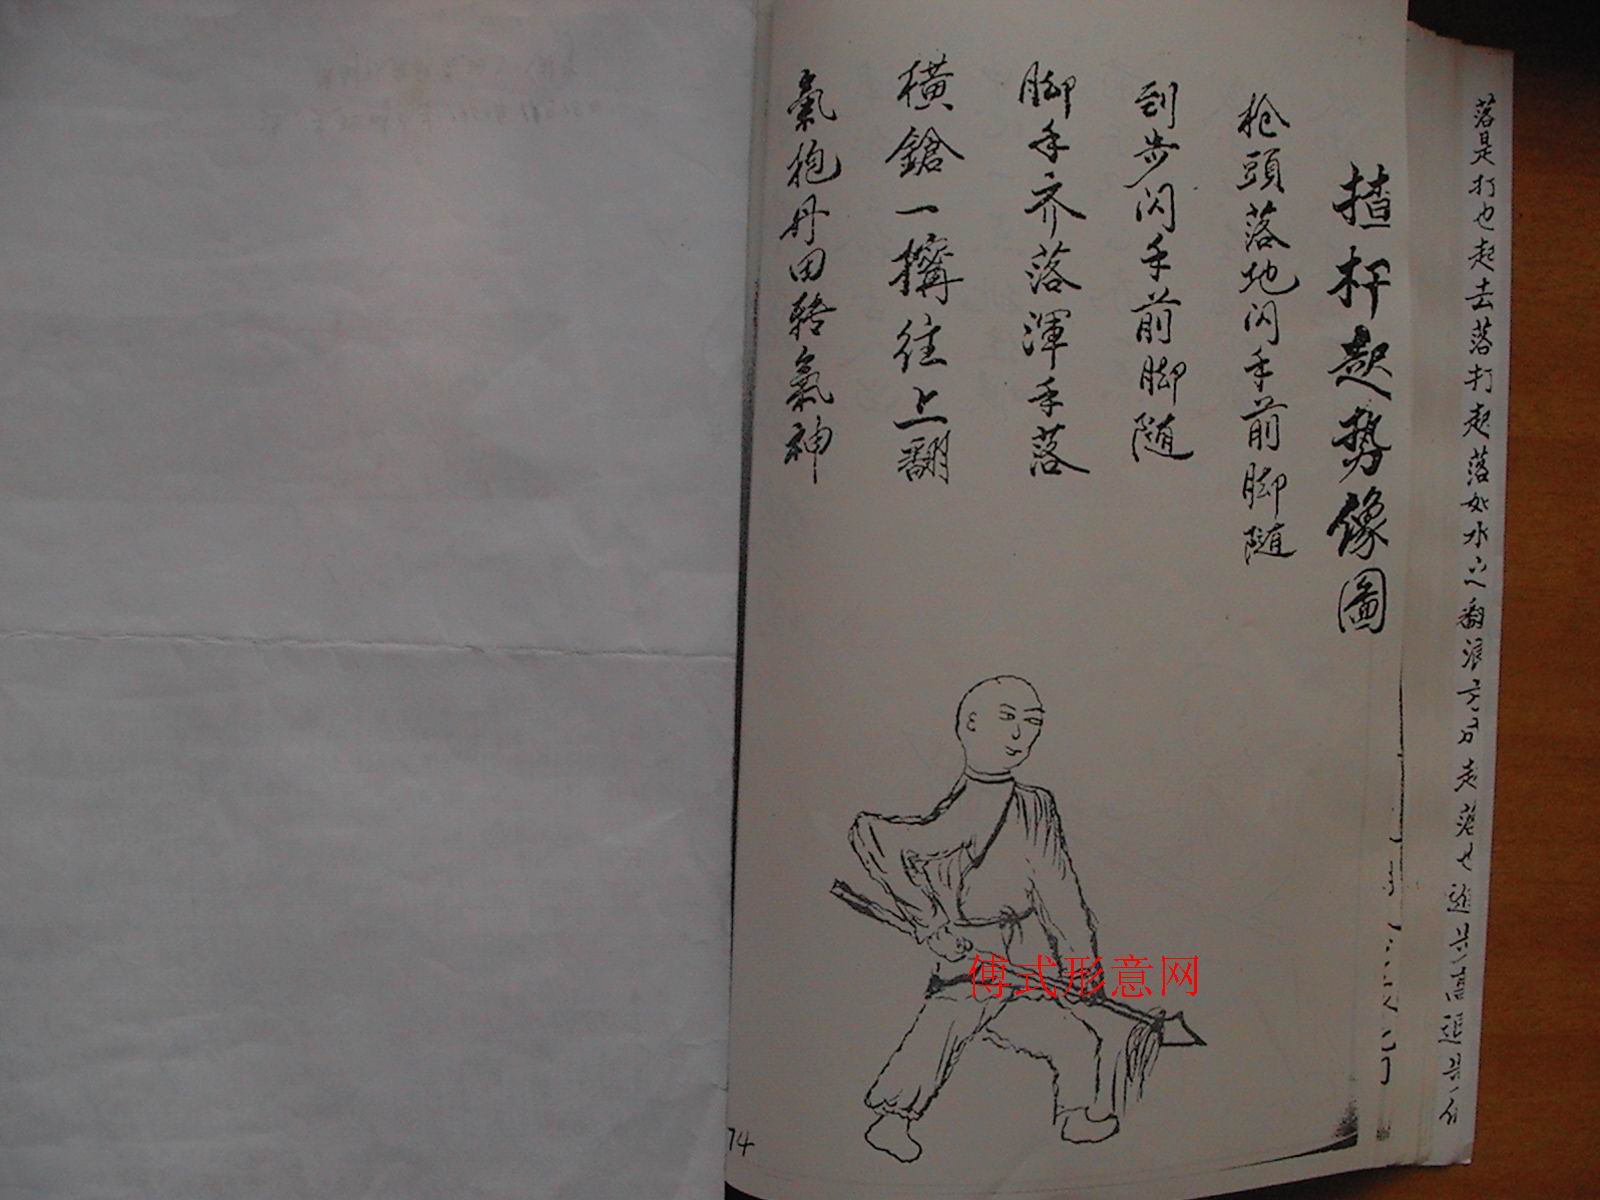 落是打也起去落打起落如水之翻浪方可走落也進步高進步
揸杆起势像圖
枪頭落地闪手前脚随
刮步闪手前脚随
脚手齐落渾手落
横鎗一搆往上翻
氣抱丹田轉氣神
傅式形意网
74